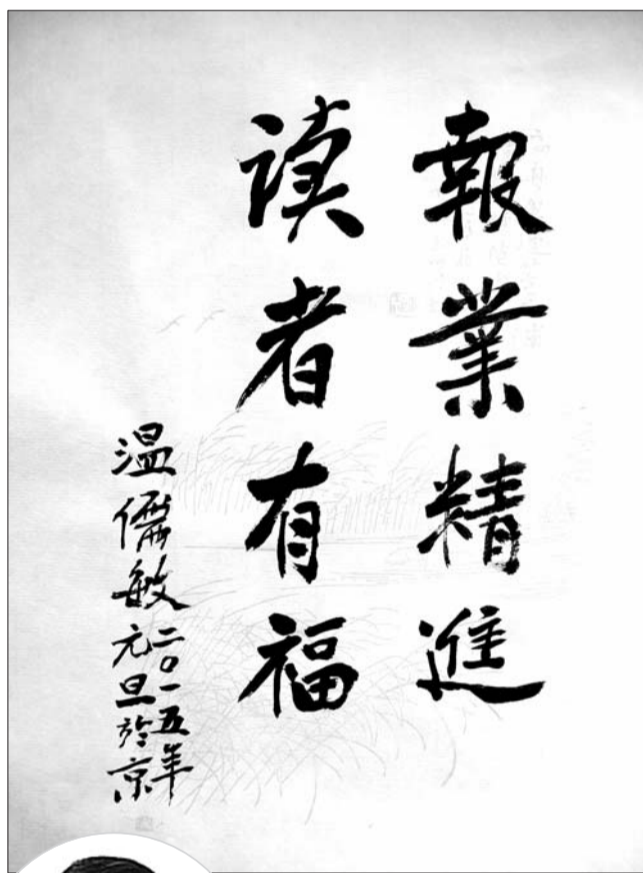 報業精進
读者有福
温儒敏
二〇一五年
元旦於京